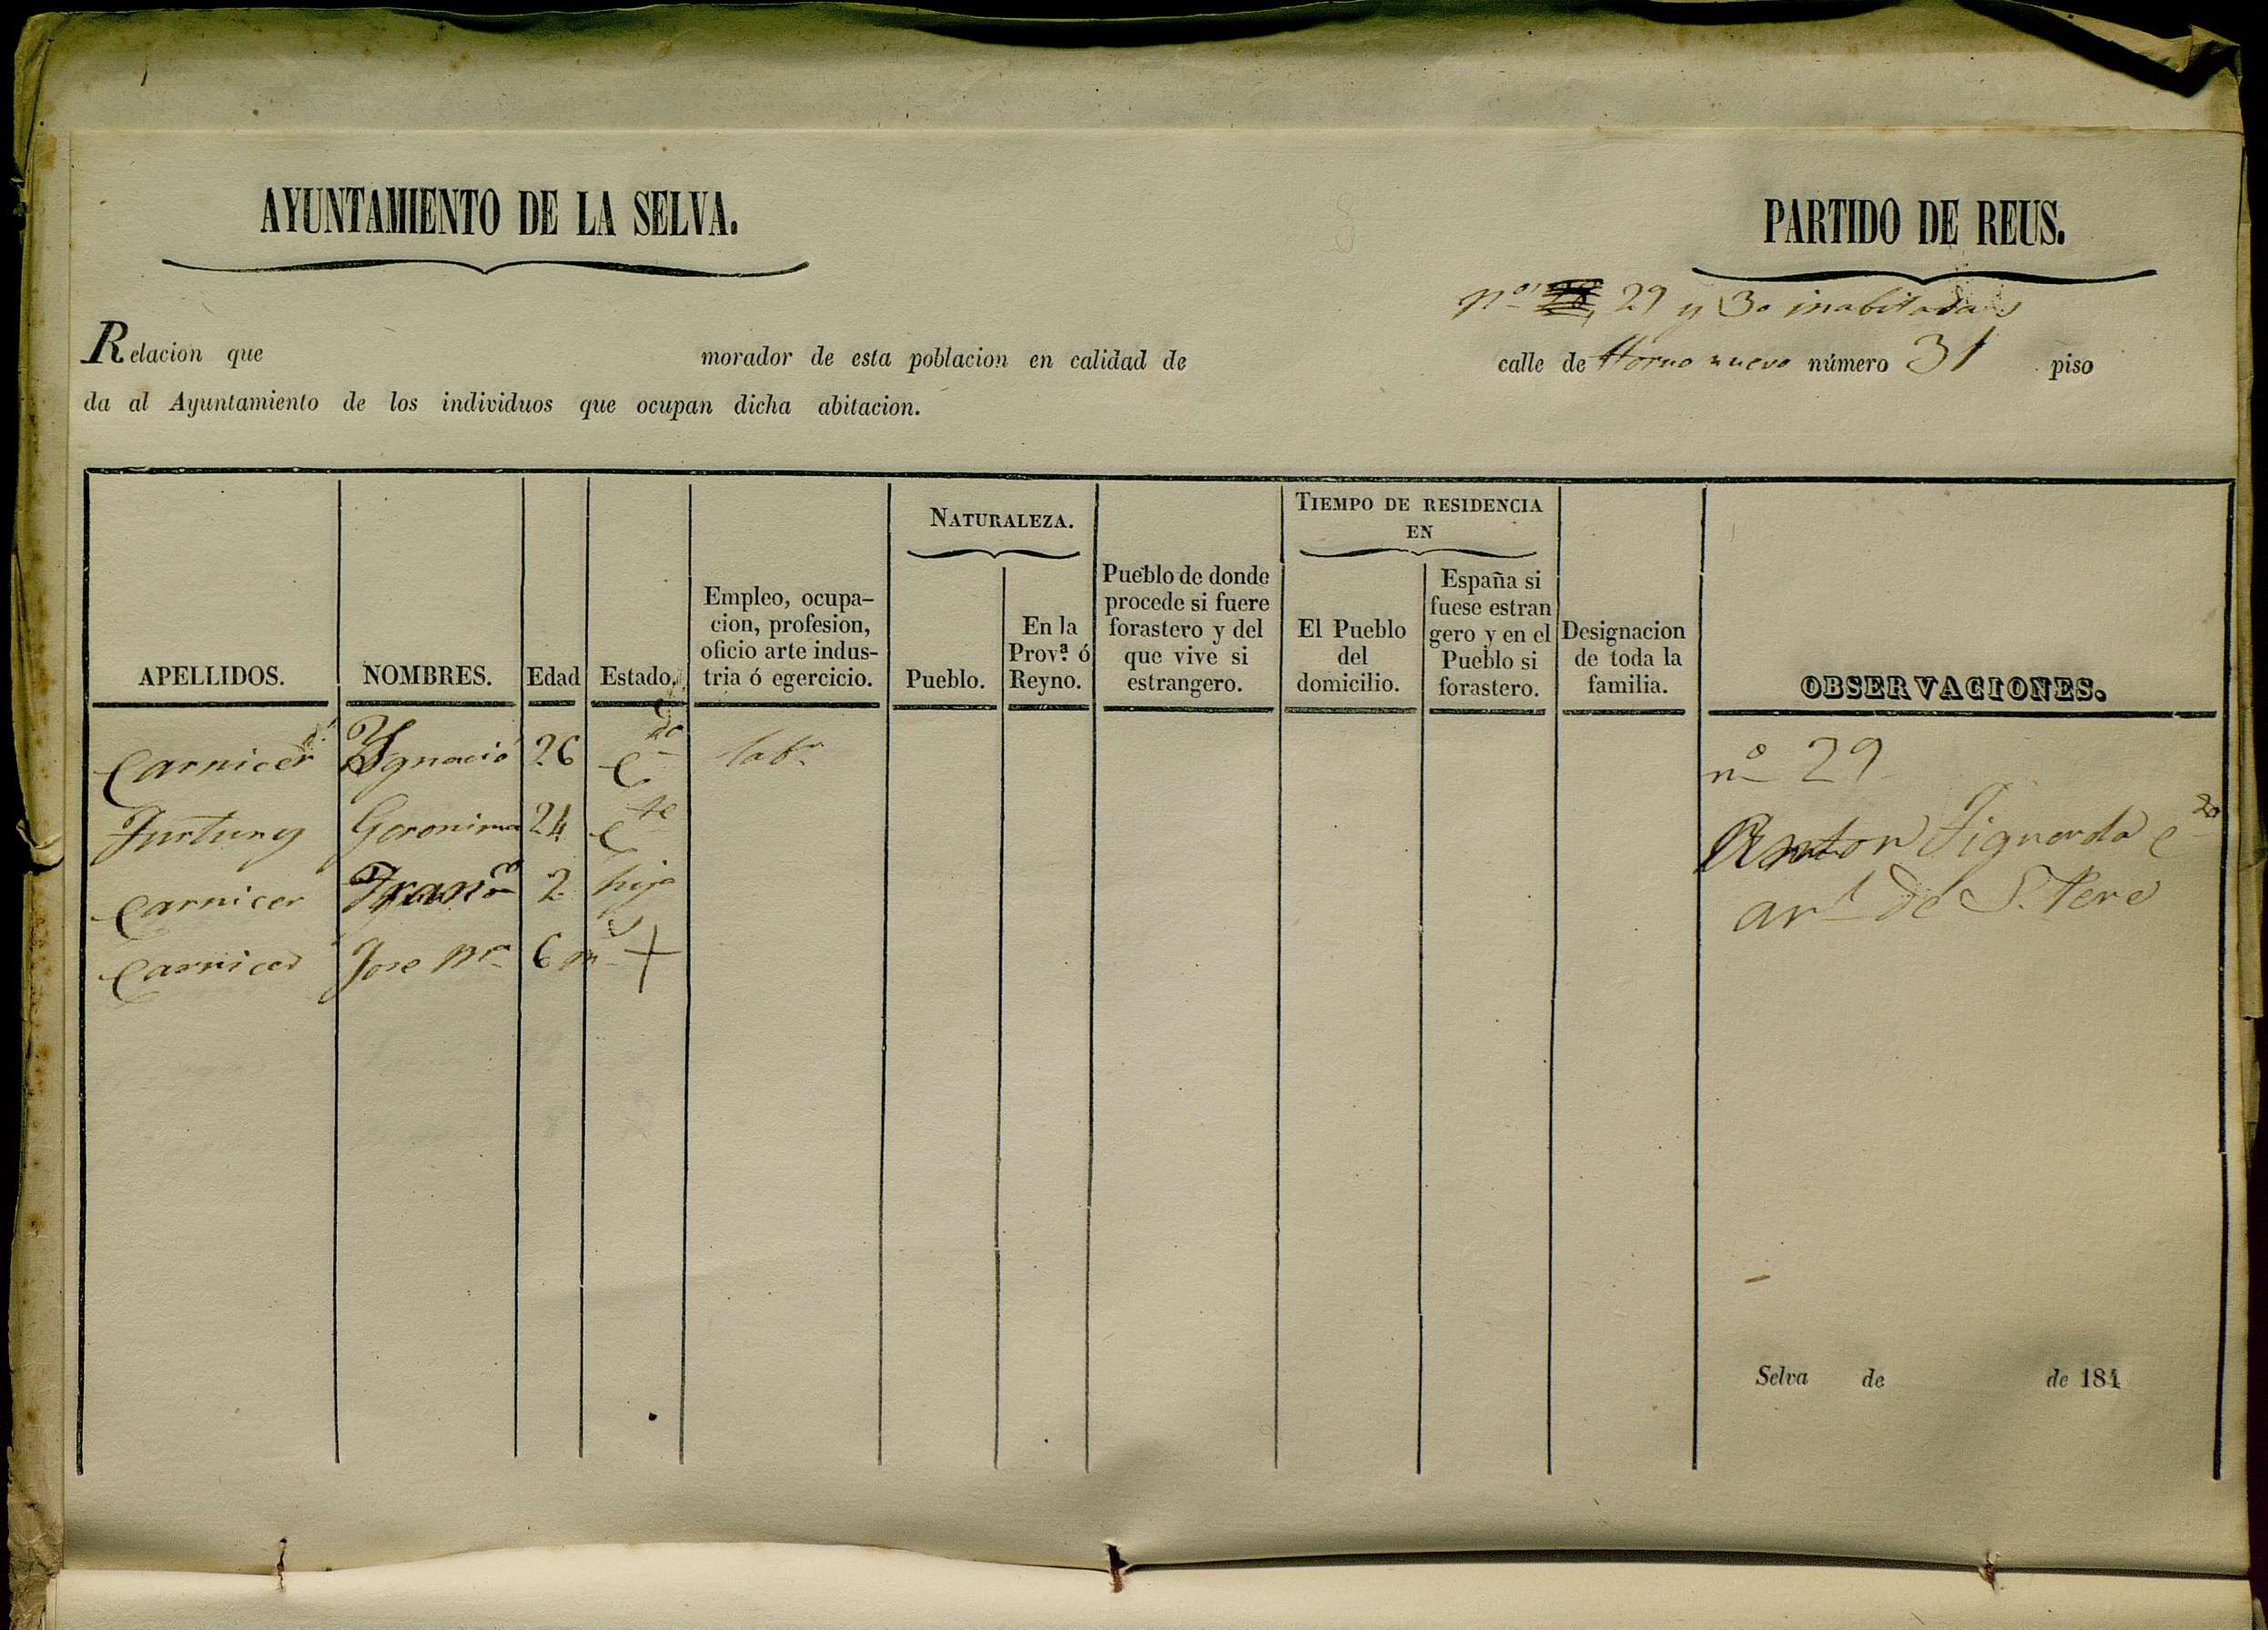 AYUNTAMIENTO DE LA SELVA.
PARTIDO DE REUS.
nos 29 y 30 inabitadas
Relacion que morador de esta poblacion en calidad de calle de Horno nuevo número 31 piso
da al Ayuntamiento de los individuos que ocupan dicha abitacion.
APELLIDOS.
NOMBRES.
Edad
Estado.
Empleo, ocupa-
cion, profesion,
oficio arte indus-
tria ó egercicio.
NATURALEZA.
Pueblo.
En la
Prov.ª ó
Reyno.
Pueblo de donde
procede si fuere
forastero y del
que vive si
estrangero.
TIEMPO DE RESIDENCIA
EN
El Pueblo
del
domicilio.
España si
fuese estran
gero y en el
Pueblo si
forastero.
Designacion
de toda la
familia.
OBSERVACIONES.
Carnicer Ygnacio 26 Cdo labr
Furtuny Geronima 24 C
Carnicer Franco 2 hijo
Carnicer Jose Mª 6 m +
nº 29
Anton Figuerola Cdo
arl de S. Pere
Selva de de 184